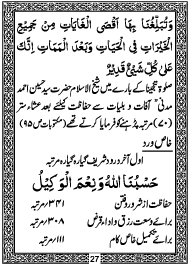 وَتُبَلِّغُنَا بِهَا أَقْصَى الْغَايَاتِ مِنْ جَمِيْعِ
الْخَيْرَاتِ فِي الْحَيَاتِ وَبَعْدَ الْمَمَاتِ اِنَّكَ
عَلٰى كُلِّ شَيْئٍ قَدِيْرٌ
صلوٰۃ تنجینا کے بارے میں شیخ الاسلام حضرت سید حسین احمد
مدنیؒ آفات و بلیات سے حفاظت کیلئے بعد عشاء ستر
(۷۰) مرتبہ پڑھنے کو فرمایا کرتے تھے (مکتوبات ص ۹۵)
خاص ورد
اول آخر درود شریف گیارہ گیارہ مرتبہ
حَسْبُنَا اللهُ وَنِعْمَ الْوَكِيْلُ
حفاظت از شر و فتن ۳۴۱ مرتبہ
برائے وسعت رزق و ادا قرض ۳۰۸ مرتبہ
برائے تکمیل خاص کام ۱۱۱ مرتبہ
27